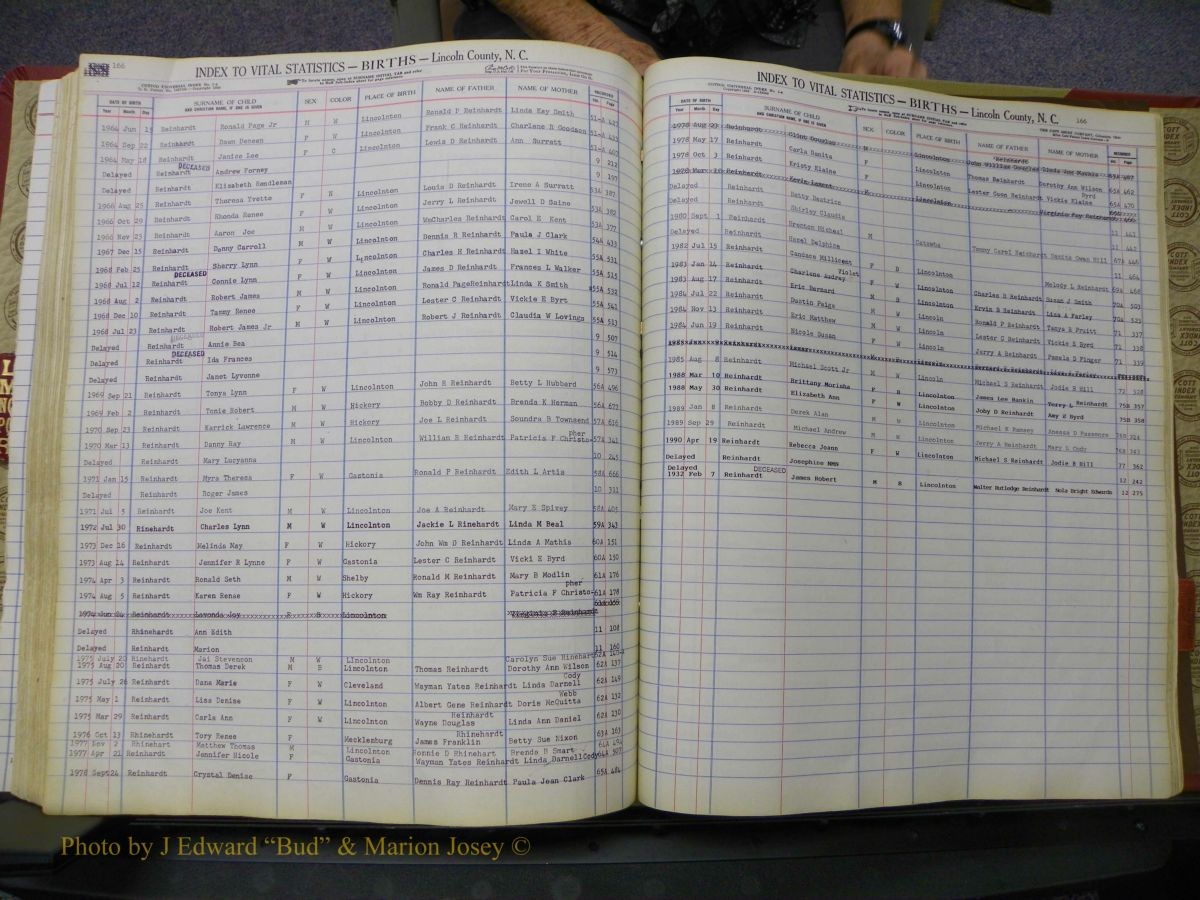 166
INDEX TO VITAL STATISTICS — BIRTHS — Lincoln County, N. C.
DATE OF BIRTH SURNAME OF CHILD SEX COLOR PLACE OF BIRTH NAME OF FATHER NAME OF MOTHER RECORDED
Year Month Day AND CHRISTIAN NAME, IF ONE IS GIVEN Vol. Page
1964 Jun Reinhardt Ronald Page Jr M W Lincolnton Ronald P Reinhardt Linda Kay Smith
1964 Sep 22 Reinhardt Dawn F W Lincolnton Frank C Reinhardt Charlene B Goodson
1964 May 18 Reinhardt Janice Lee F C Lincolnton Lewis D Reinhardt Ann Burratt
Delayed Reinhardt DECEASED Andrew Forney 9 212
Delayed Reinhardt Elizabeth 9 197
1966 Aug 25 Reinhardt Theresa Yvette F Lincolnton Louis D Reinhardt Irene A Surratt 53A 387
1966 Oct 29 Reinhardt Rhonda Renee F W Lincolnton Jerry L Reinhardt Jewell D Saine 53A 382
1966 Nov 23 Reinhardt Aaron Joe M W Lincolnton WmCharles Reinhardt Carol E Kent 53A 377
1967 Dec 15 Reinhardt Danny Carroll M W Lincolnton Dennis R Reinhardt Paula J Clark 54A 433
1968 Feb 25 Reinhardt Sherry Lynn F W Lincolnton Charles H Reinhardt Hazel I White 55A 531
1968 Jul 12 Reinhardt DECEASED Connie Lynn F W Lincolnton James D Reinhardt Frances L Walker 55A 515
1968 Aug 2 Reinhardt Robert James M W Lincolnton Ronald PageReinhardt Linda K Smith 55A 532
1968 Dec 10 Reinhardt Tammy Renee F W Lincolnton Lester C Reinhardt Vickie E Byrd 55A 541
1968 Jul 23 Reinhardt Robert James Jr M W Lincolnton Robert J Reinhardt Claudia W Lovings 55A 513
Delayed Reinhardt Annie Bea 9 507
Delayed Reinhardt DECEASED Ida Frances 9 514
Delayed Reinhardt Janet Lyvonne 9 573
1969 Sep 21 Reinhardt Tonya Lynn F W Lincolnton John R Reinhardt Betty L Hubbard 56A 496
1969 Feb 2 Reinhardt Tonie Robert M W Hickory Bobby D Reinhardt Brenda K Herman 56A 673
1970 Sep 23 Reinhardt Karrick Lawrence M W Hickory Joe L Reinhardt Soundra B Townsend 57A 616
1970 Mar 13 Reinhardt Danny Ray M W Lincolnton William B Reinhardt Patricia F Christopher 57A 341
Delayed Reinhardt Mary Lucyanna 10 245
1971 Jan 15 Reinhardt Myra Theresa F W Gastonia Ronald P Reinhardt Edith L Artis 58A 666
Delayed Reinhardt Roger James 10 311
1971 Jul 5 Reinhardt Joe Kent M W Lincolnton Joe A Reinhardt Mary E Spivey 58A 405
1972 Jul 30 Rinehardt Charles Lynn M W Lincolnton Jackie L Rinehardt Linda M Beal 59A 343
1973 Dec 16 Reinhardt Melinda May F W Hickory John Wm D Reinhardt Linda A Mathis 60A 151
1973 Aug 14 Reinhardt Jennifer R Lynne F W Gastonia Lester C Reinhardt Vicki E Byrd 60A 150
1974 Apr 3 Reinhardt Ronald Seth M W Shelby Ronald M Reinhardt Mary B Modlin 61A 176
1974 Aug 5 Reinhardt Karen Renae F W Hickory Wm Ray Reinhardt Patricia F Christopher 61A 178
1974 Jun 24 Reinhardt Lavonda Joy F B Lincolnton Virginia F Reinhardt
Delayed Rhinehardt Ann Edith 11 108
Delayed Reinhardt Marion 11 160
1975 July 20 Rinehardt Jai Stevenson M W Lincolnton Carolyn Sue Rinehart
1975 Aug 20 Reinhardt Thomas Derek M B Lincolnton Thomas Reinhardt Dorothy Ann Wilson 62A 137
1975 July 26 Reinhardt Dana Marie F W Cleveland Wayman Yates Reinhardt Linda Darnell Cody 62A 149
1975 May 1 Reinhardt Lisa Denise F W Lincolnton Albert Gene Reinhardt Doris McQuitta Webb 62A 132
1975 Mar 29 Reinhardt Carla Ann F W Lincolnton Wayne Douglas Reinhardt Linda Ann Daniel 62A 130
1976 Oct 13 Rhinehardt Tory Renee F Mecklenburg James Franklin Rhinehardt Betty Sue Nixon 63A 163
1977 Nov 2 Rhinehart Matthew Thomas M Lincolnton Donnie D Rhinehart Brenda B Smart 64A
1977 Apr 21 Reinhardt Jennifer Nicole F Gastonia Wayman Yates Reinhardt Linda Darnell Cody 64A 507
1978 Sept 24 Reinhardt Crystal Denise F Gastonia Dennis Ray Reinhardt Paula Jean Clark 65A 484
INDEX TO VITAL STATISTICS — BIRTHS — Lincoln County, N. C. 166
DATE OF BIRTH SURNAME OF CHILD SEX COLOR PLACE OF BIRTH NAME OF FATHER NAME OF MOTHER RECORDED
Year Month Day AND CHRISTIAN NAME, IF ONE IS GIVEN Vol. Page
1978 Aug 23 Reinhardt Clint Douglas M Lincolnton John William Douglas Reinhardt
1978 May 17 Reinhardt Carla Danita F Lincolnton Thomas Reinhardt Dorothy Ann Wilson 65A 462
1978 Oct 3 Reinhardt Kristy Elaine F Lincolnton Lester Coon Reinhardt Vickie Elaine Byrd 65A 470
1978 Reinhardt Kevin Lamont Lincolnton Virginia Fay Reinhardt
Delayed Reinhardt Betty Beatrice 11 461
Delayed Reinhardt Shirley Claudia 11 442
1980 Sept 1 Reinhardt Brenton Micheal M Catawba Tommy Carol Reinhardt 67A 446
Delayed Reinhardt Hazel Delphine 11 464
1982 Jul 15 Reinhardt Candace Millicent F B Lincolnton Melody L Reinhardt 69A 468
1983 Jan 14 Reinhardt Charlene Audrey Violet F W Lincolnton Charles D Reinhardt Susan J Smith 70A 503
1983 Aug 17 Reinhardt Eric Bernard M B Lincolnton Ervin B Reinhardt Lisa A Farley 70A 525
1984 Jul 22 Reinhardt Dustin Paige M W Lincoln Ronald P Reinhardt Tanya R Pruitt 71 337
1984 Nov 13 Reinhardt Eric Matthew M W Lincoln Lester C Reinhardt Vickie E Byrd 71 338
1984 Jun 19 Reinhardt Nicole Susan F W Lincoln Jerry A Reinhardt Pamela D Finger 71 339
1985 Reinhardt
1985 Aug 8 Reinhardt Michael Scott Jr M W Lincoln Michael S Reinhardt Jodie B Hill 72 328
1988 Mar 10 Reinhardt Brittany Morisha F B Lincolnton James Lee Rankin Terry L Reinhardt 75B 357
1988 May 30 Reinhardt Elizabeth Ann F W Lincolnton Joby D Reinhardt Amy E Byrd 75B 358
1989 Jan 8 Reinhardt Derek Alan M Lincolnton Michael E Ramsey
1989 Sep 29 Reinhardt Michael Andrew M W Lincolnton Jerry A Reinhardt Mary L Cody
1990 Apr 19 Reinhardt Rebecca Jeann F W Lincolnton Michael S Reinhardt Jodie B Hill 77 362
Delayed Reinhardt Josephine NMN 12 242
Delayed
1932 Feb 7 Reinhardt DECEASED James Robert M B Lincolnton Walter Rutledge Reinhardt Nola Bright Edwards 12 275
Photo by J Edward “Bud” & Marion Josey ©